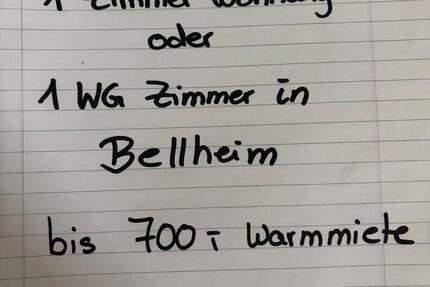 1 Zimmer Wohnung
oder
1 WG Zimmer in
Bellheim
bis 700,- Warmmiete